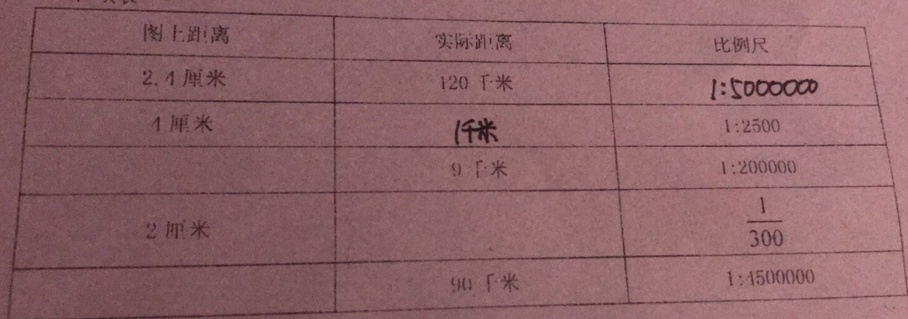 图上距离 实际距离 比例尺
2.4厘米 120千米 1:5000000
4厘米 1千米 1:2500
9千米 1:200000
2厘米 1/300
90千米 1:4500000